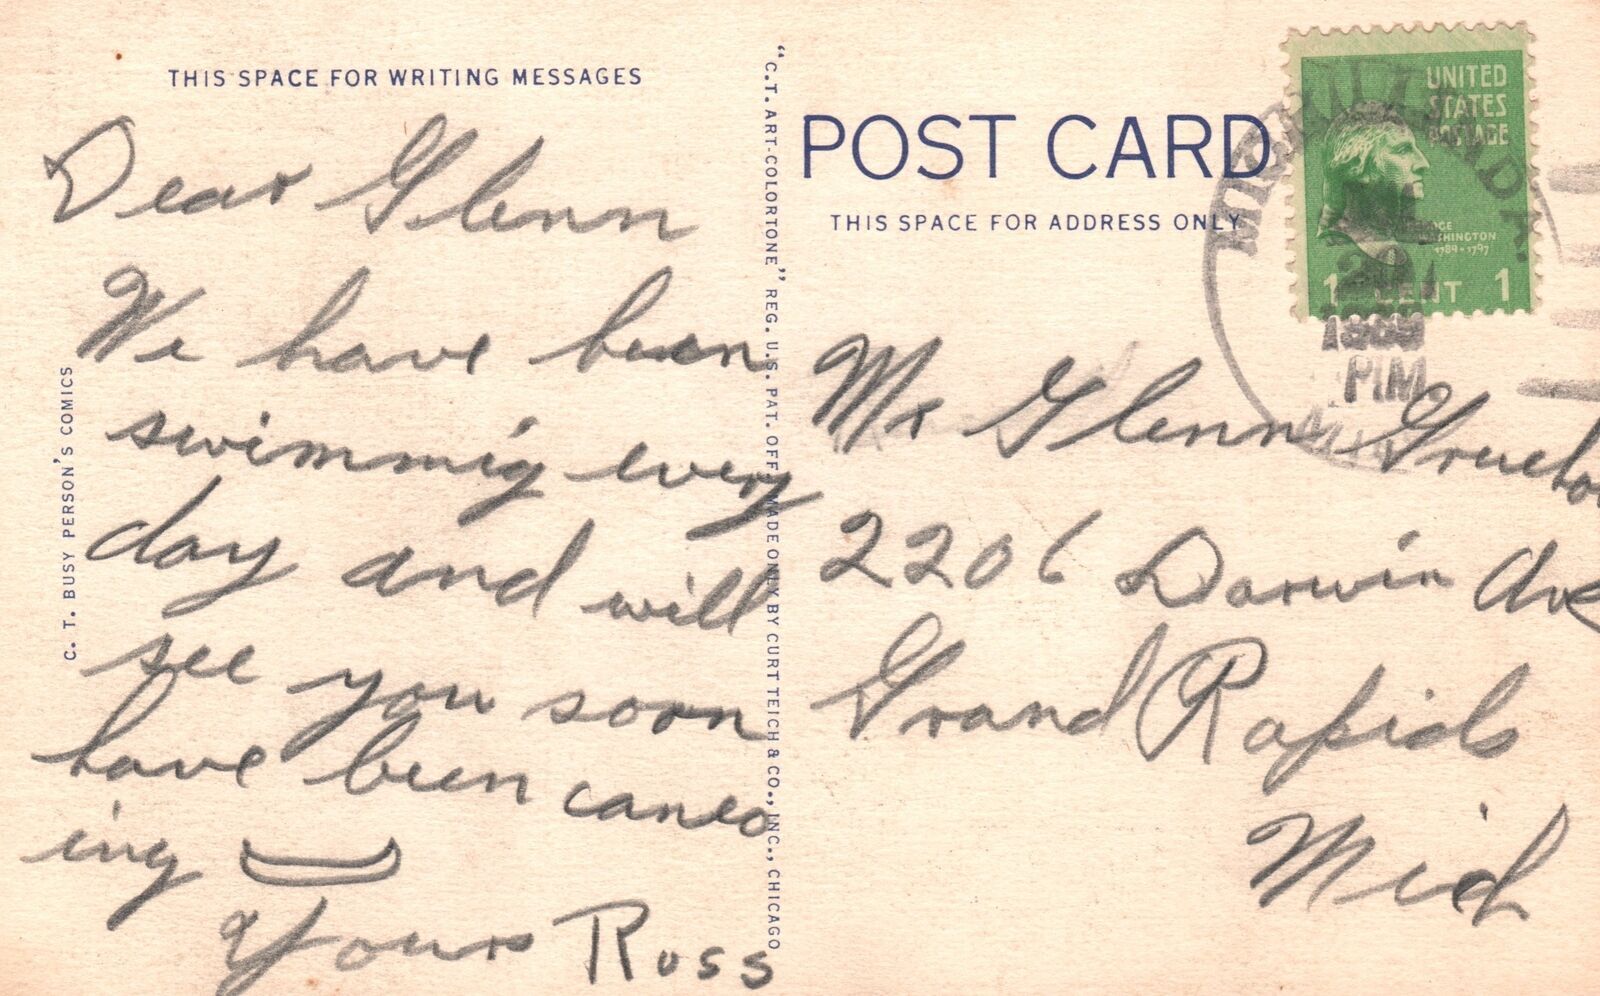 THIS SPACE FOR WRITING MESSAGES
Dear Glenn
We have been
swimmig every
day and will
see you soon
have been caneo
ing
Yours Ross
C. T. BUSY PERSON'S COMICS
"C.T. ART-COLORTONE" REG. U.S. PAT. OFF. MADE ONLY BY CURT TEICH & CO., INC., CHICAGO
POST CARD
THIS SPACE FOR ADDRESS ONLY
UNITED
STATES
POSTAGE
1789-1797
1 CENT 1
PM
Mr Glenn
2206 Darwin Ave
Grand Rapids
Mich